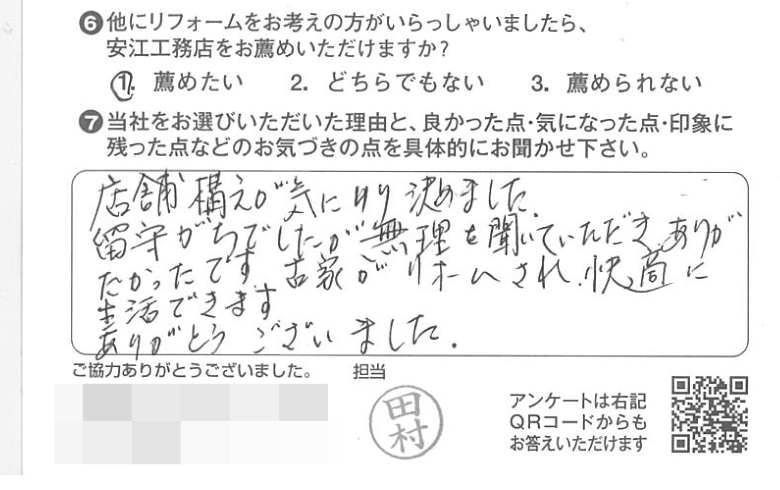 ❻他にリフォームをお考えの方がいらっしゃいましたら、
安江工務店をお薦めいただけますか?
1. 薦めたい 2. どちらでもない 3. 薦められない
❼当社をお選びいただいた理由と、良かった点・気になった点・印象に
残った点などのお気づきの点を具体的にお聞かせ下さい。
店舗構えが気に入り決めました。
留守がちでしたが無理を聞いていただき、ありが
たかったです。古家がリホームされ、快適に
生活できます
ありがとうございました。
ご協力ありがとうございました。 担当
田村
アンケートは右記
QRコードからも
お答えいただけます